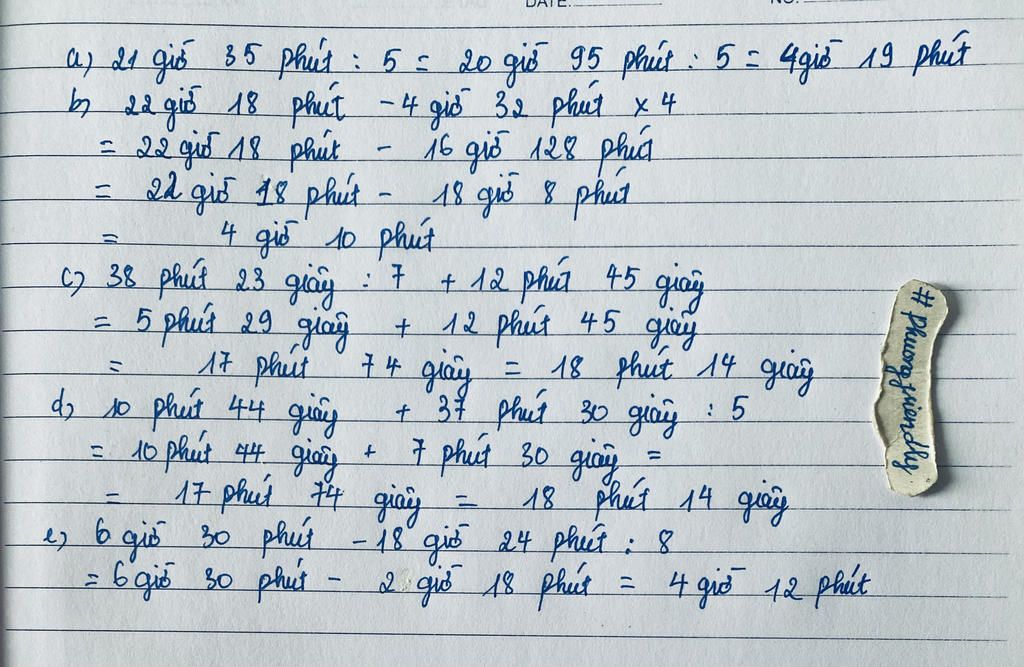 DATE: NO:
a) 21 giờ 35 phút : 5 = 20 giờ 95 phút : 5 = 4giờ 19 phút
b) 22 giờ 18 phút - 4 giờ 32 phút x 4
= 22 giờ 18 phút - 16 giờ 128 phút
= 22 giờ 18 phút - 18 giờ 8 phút
= 4 giờ 10 phút
c) 38 phút 23 giây : 7 + 12 phút 45 giây
= 5 phút 29 giây + 12 phút 45 giây
= 17 phút 74 giây = 18 phút 14 giây
d) 10 phút 44 giây + 37 phút 30 giây : 5
= 10 phút 44 giây + 7 phút 30 giây =
= 17 phút 74 giây = 18 phút 14 giây
e) 6 giờ 30 phút - 18 giờ 24 phút : 8
= 6 giờ 30 phút - 2 giờ 18 phút = 4 giờ 12 phút